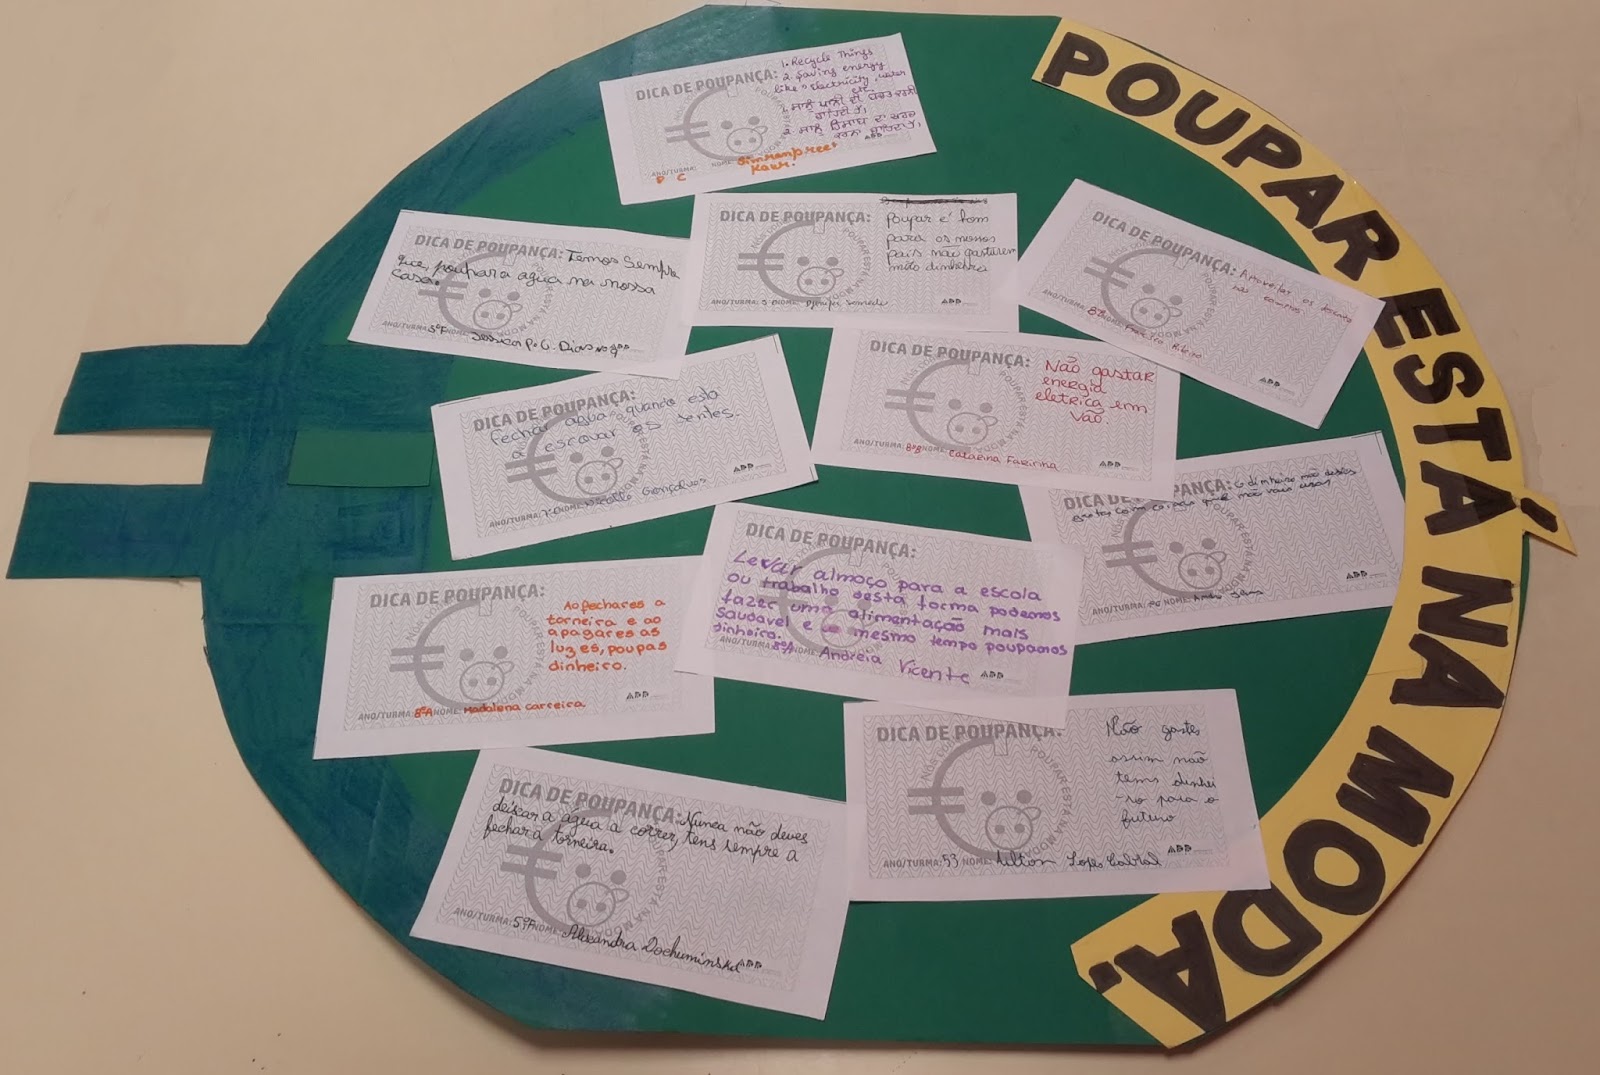 POUPAR ESTÁ NA MODA.
DICA DE POUPANÇA:
1. Recycle Things
2. Saving energy
like electricity, water
etc.
ANO/TURMA: P C NOME: Simranpreet
Kaur.
DICA DE POUPANÇA: Temos Sempre
que, pouhara agua na nossa
casa.
ANO/TURMA: 5ºF NOME: Jessica P. G. Dias Nº9
DICA DE POUPANÇA: Poupar é bom
para os nossos
pais não gastarem
mto dinheiro
ANO/TURMA: NOME:
DICA DE POUPANÇA: Aproveitar os
nas
ANO/TURMA: 8ºB NOME: Francisco Ribeiro
DICA DE POUPANÇA:
fechar agua quando esta
a escovar os dentes.
ANO/TURMA: NOME: Nicolle Gonçalves
DICA DE POUPANÇA:
Não gastar
energia
eletrica em
vão.
ANO/TURMA: 8ºB NOME: Catarina Farinha
DICA DE POUPANÇA: O dinheiro não deves
gastar com coisas que não vais usar
ANO/TURMA: NOME:
DICA DE POUPANÇA:
Levar almoço para a escola
ou trabalho desta forma podemos
fazer uma alimentação mais
saudavel e ao mesmo tempo poupamos
dinheiro.
ANO/TURMA: 8ºA NOME: Andreia Vicente
DICA DE POUPANÇA:
Ao fechares a
torneira e ao
apagares as
luzes, poupas
dinheiro.
ANO/TURMA: 8ºA NOME: Madalena Carreira
DICA DE POUPANÇA:
Não gastes
assim não
tems dinhei
-ro para o
futuro
ANO/TURMA: 53 NOME: Ailton Lopes Cabral
DICA DE POUPANÇA: Nunca não deves
deiscar a água a correr, tens sempre a
fechar a torneira.
ANO/TURMA: 5ºF NOME: Alexandra Dochuminska